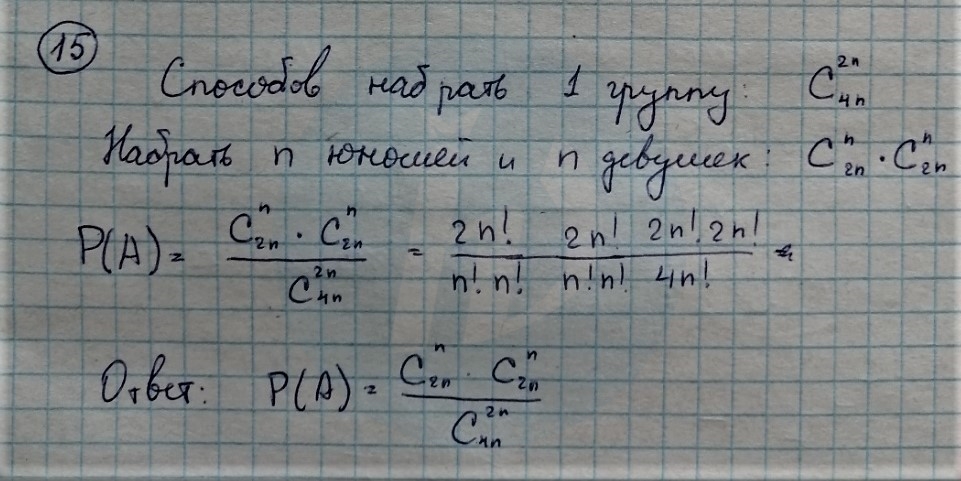 15
Способов набрать 1 группу: C_{4n}^{2n}
Набрать n юношей и n девушек: C_{2n}^{n} · C_{2n}^{n}
P(A) = \frac{C_{2n}^{n} · C_{2n}^{n}}{C_{4n}^{2n}} = \frac{2n! 2n! 2n! 2n!}{n! n! n! n! 4n!} =
Ответ: P(A) = \frac{C_{2n}^{n} · C_{2n}^{n}}{C_{4n}^{2n}}